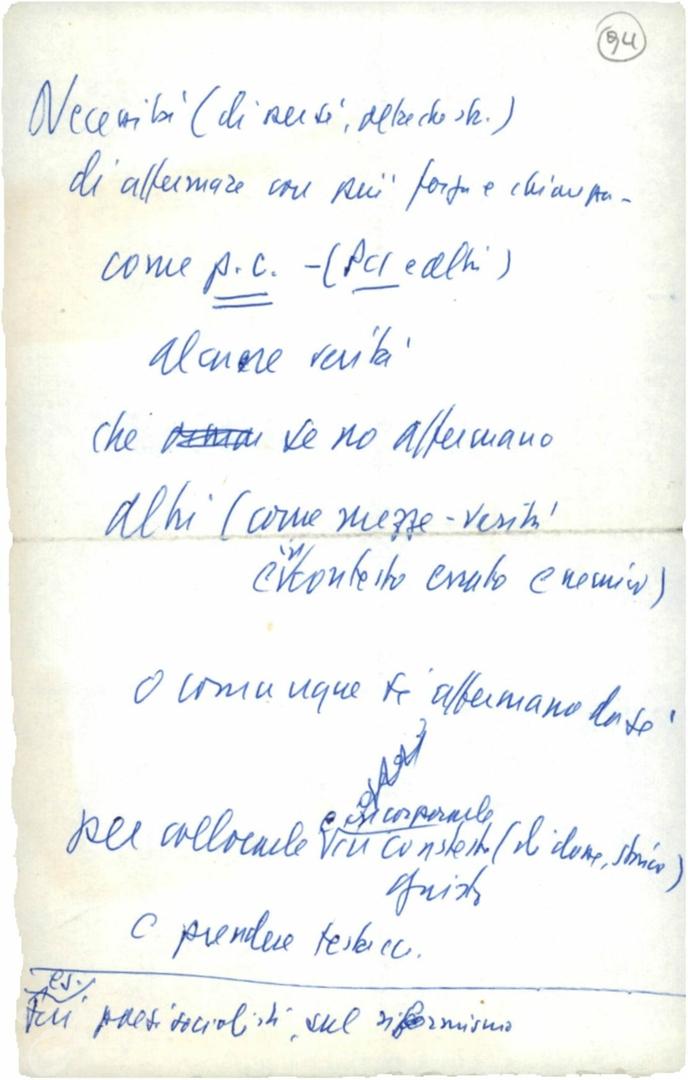 94
Necessità (di per sé, oltre che
di affermare con più forza e chiarezza -
come p.c. - (PCI e altri)
alcune verità
che se no affermano
altri (come mezze-verità
e in contesto errato e nemico)
o comunque si affermano da sé
per collocarle e incorporarle in contesto (di classe, storico)
giusto
e prendere
es.
sui paesi socialisti, sul riformismo